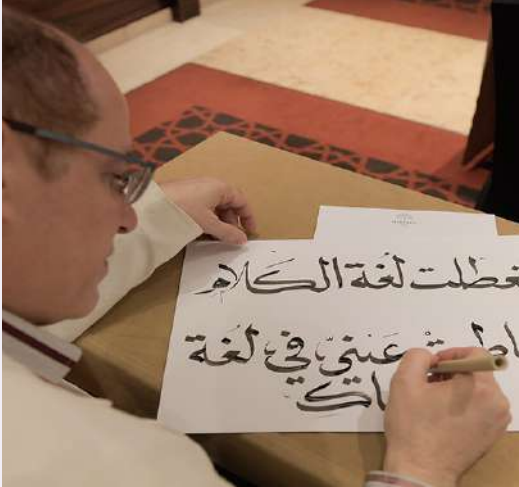 عطلت لغة الكلام
عَينيّ في لُغة